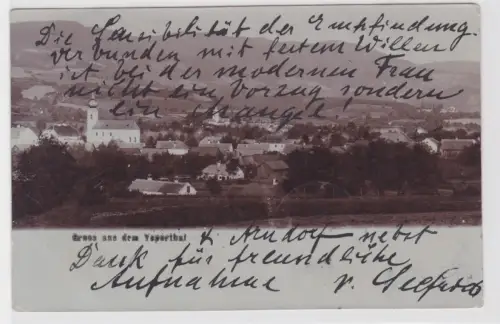 Die Sensibilität der Empfindung
verbunden mit festem Willen
ist bei der modernen Frau
nicht ein Vorzug sondern
ein !
Gruss aus dem Ysperthal
& Arndorf nebst
Dank für freundliche
Aufnahme v.